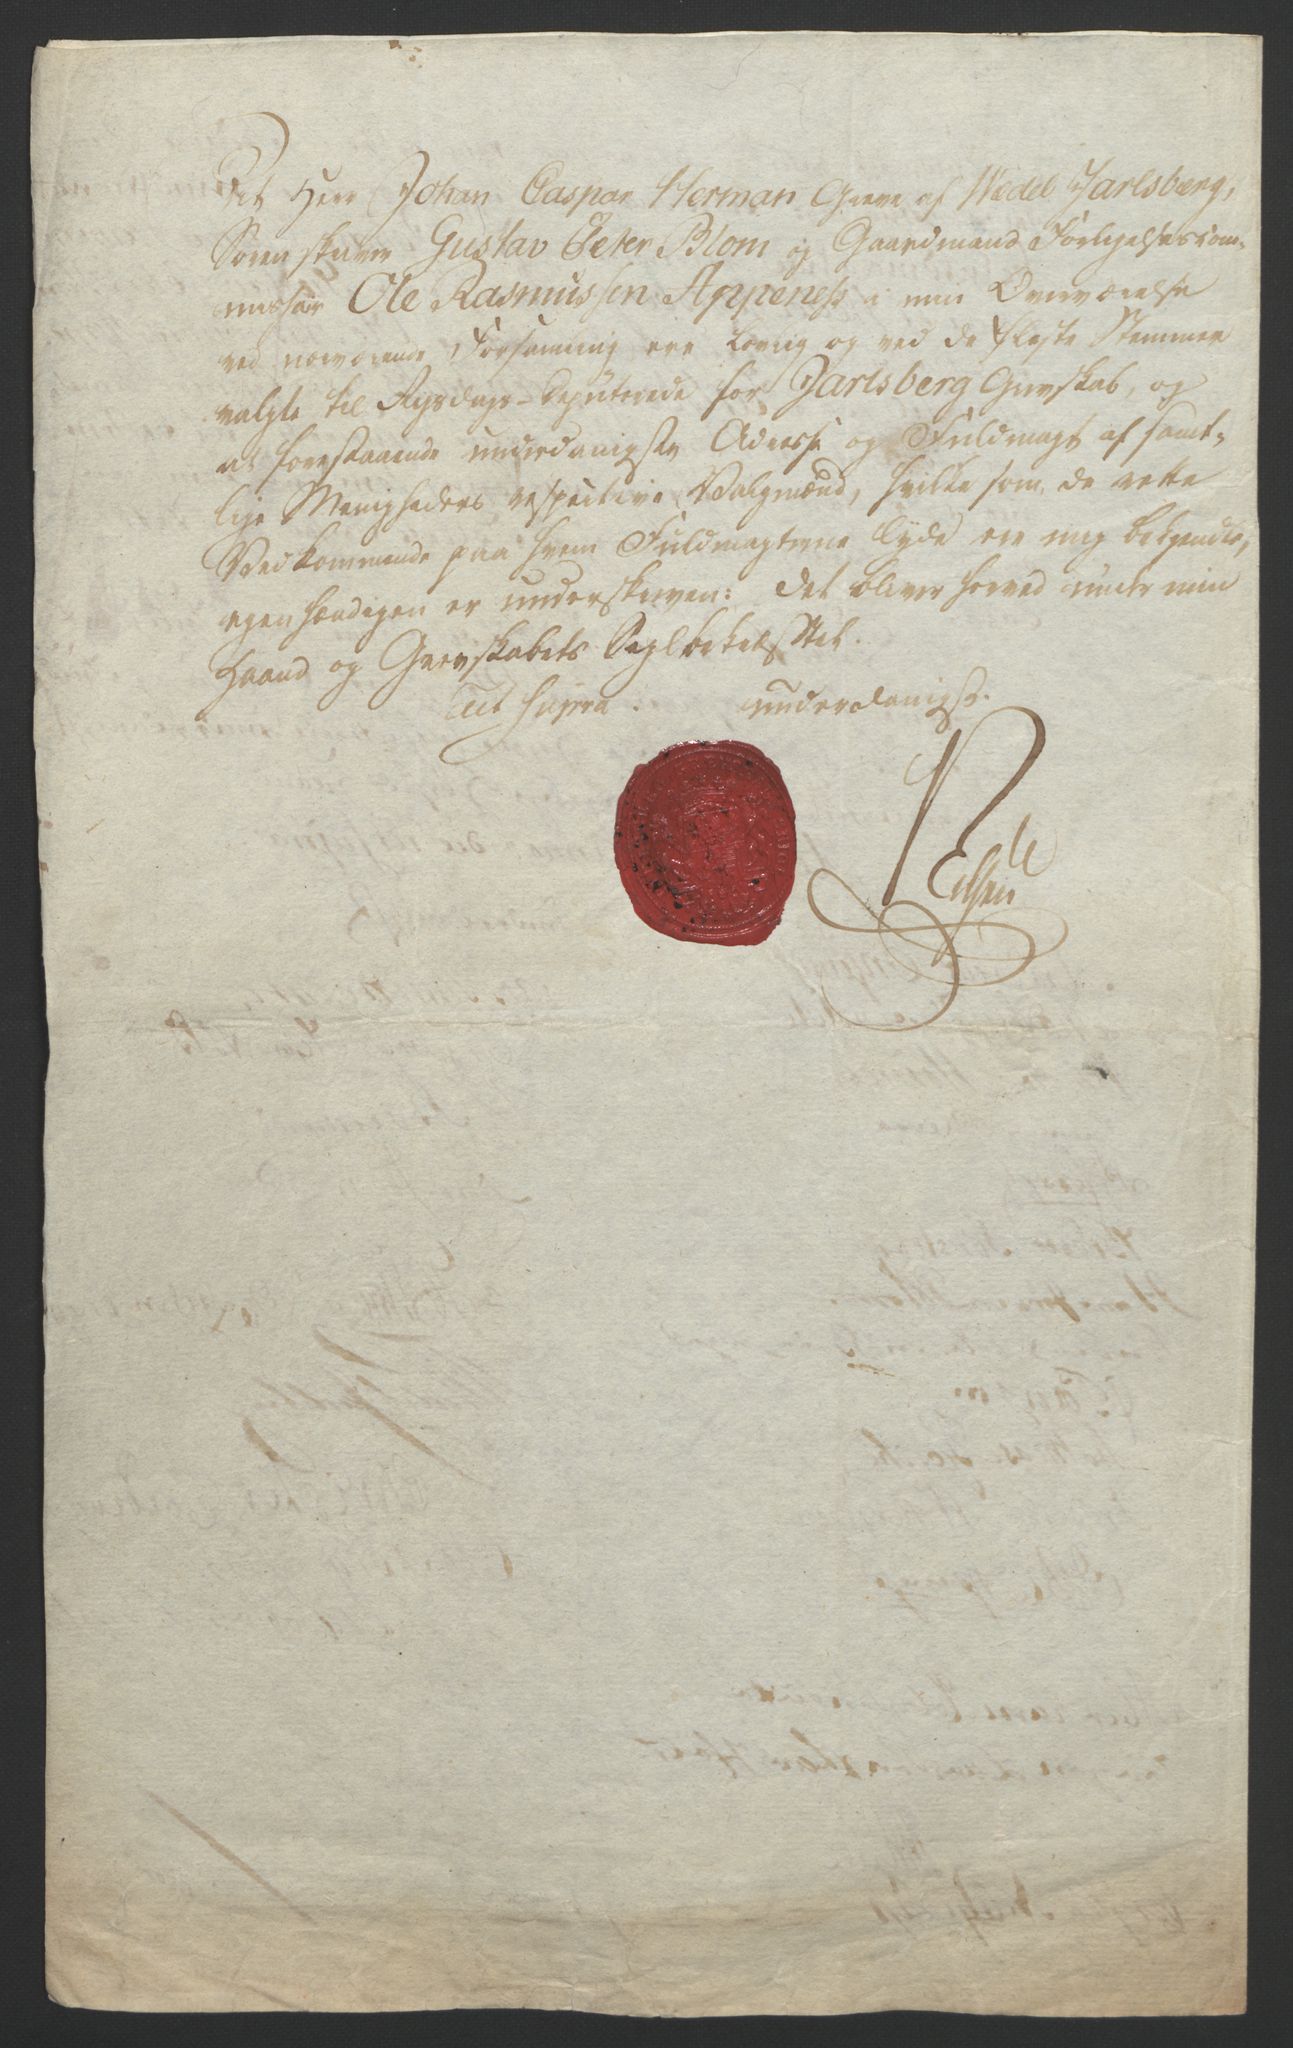 At Herr Johan Caspar Herman Greve af Wedel Jarlsberg,
Sorenskriver Gustav Peter Blom og Gaardmand Forligelsescom-
missair Ole Rasmussen Appeness i min Overværelse
ved nærværende Forsamling ere lovlig og ved de fleste Stemmer
valgte til Rigsdags-Deputerede for Jarlsberg Grevskab, og
at foreskaaende underdanigste Adresse og Fuldmagt af samt-
lige Menigheders respective Valgmænd, hvilke som de rette
Vedkommende paa hvem Fuldmagterne lyde ere mig bekjendte,
egenhændigen er underskreven: det bliver herved under min
Haand og Grevskabets Segl bekræftet.
Ut supra. underdanigst.